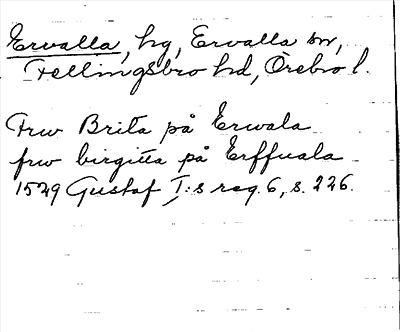 Ervalla, hg, Ervalla sn,
Fellingsbro hd, Örebro l.
Frw Brita på Erwala
frw birgitta på Erffuala
1529 Gustaf I:s reg. 6, s. 226.